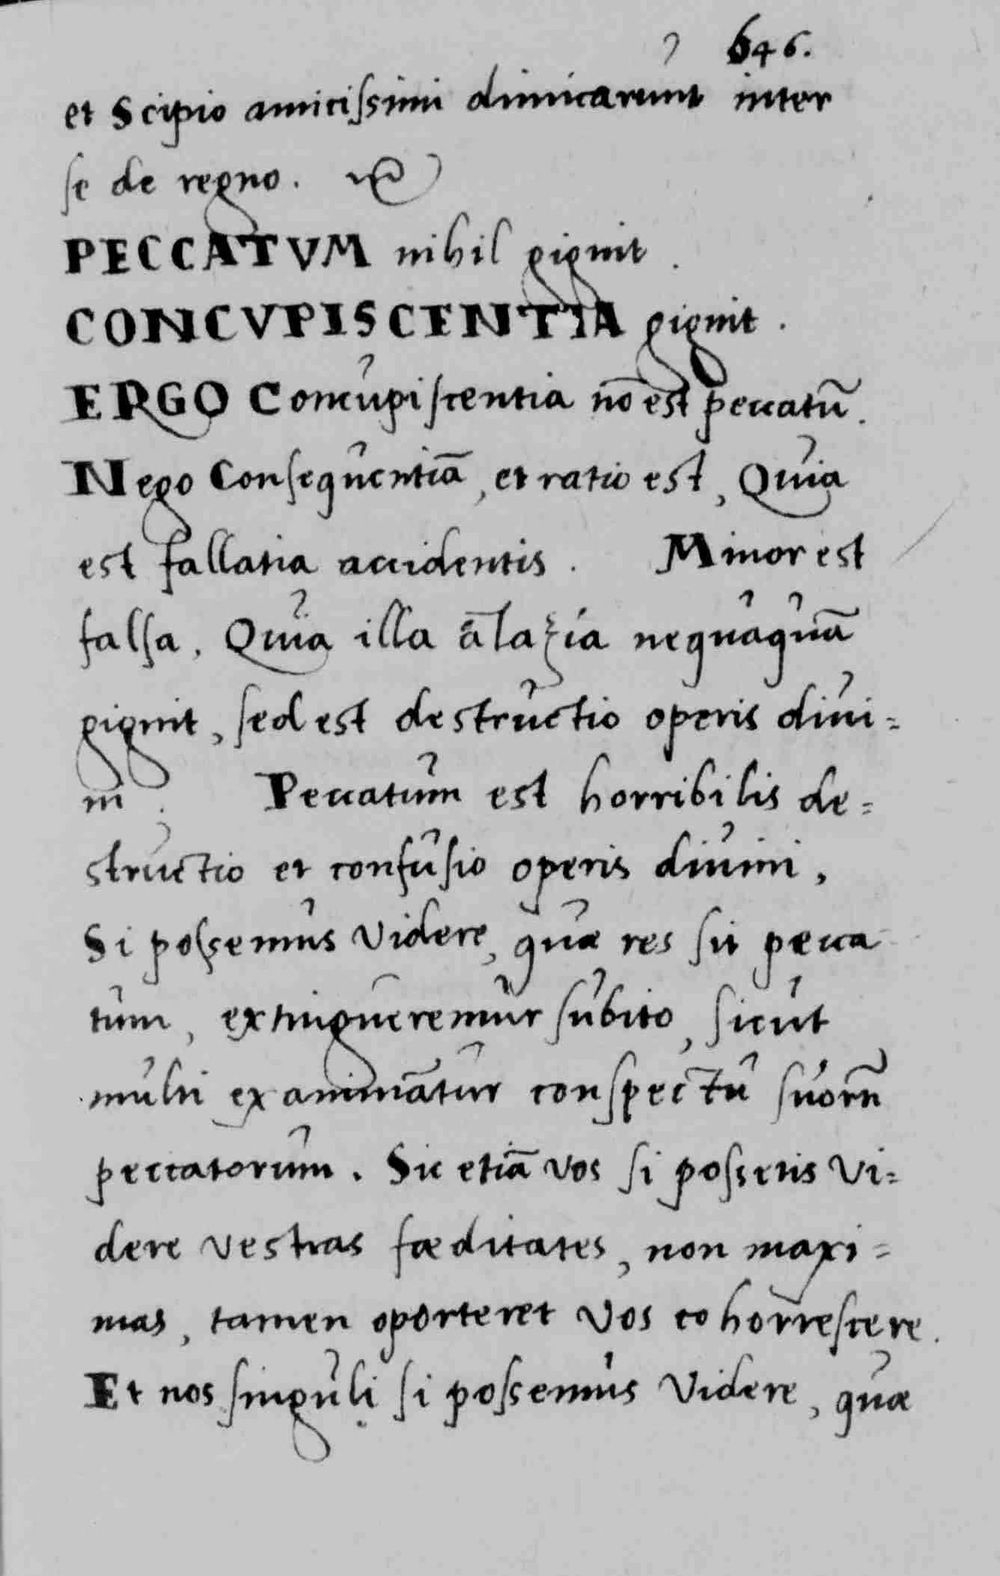 646.
et Scipio amicissimi dimicarunt inter
se de regno.
PECCATVM nihil gignit.
CONCVPISCENTIA gignit.
ERGO Concupiscentia nō est peccatū.
Nego Consequentiā, et ratio est, Quia
est fallatia accidentis. Minor est
falsa, Quia illa ἀταξία nequaquā
gignit, sed est destructio operis diui=
ni. Peccatum est horribilis de=
structio et confusio operis diuini,
Si possemus videre, quæ res sit pecca
tum, extingueremur subito, sicut
multi exanimātur conspectu suorū
peccatorum. Sic etiā vos si possetis vi=
dere vestras fœditates, non maxi=
mas, tamen oporteret vos cohorrescere.
Et nos singuli si possemus videre, quæ